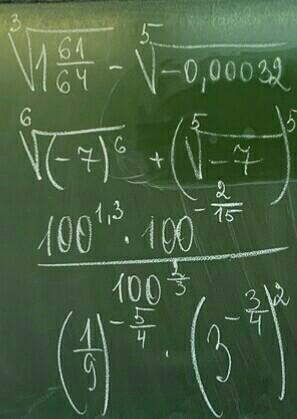 ∛(1 61/64) - ⁵√(-0,00032)
⁶√((-7)⁶) + (⁵√(-7))⁵
(100^(1,3) · 100^(-2/15)) / 100^(2/3)
(1/9)^(-5/4) · (3^(-3/4))²